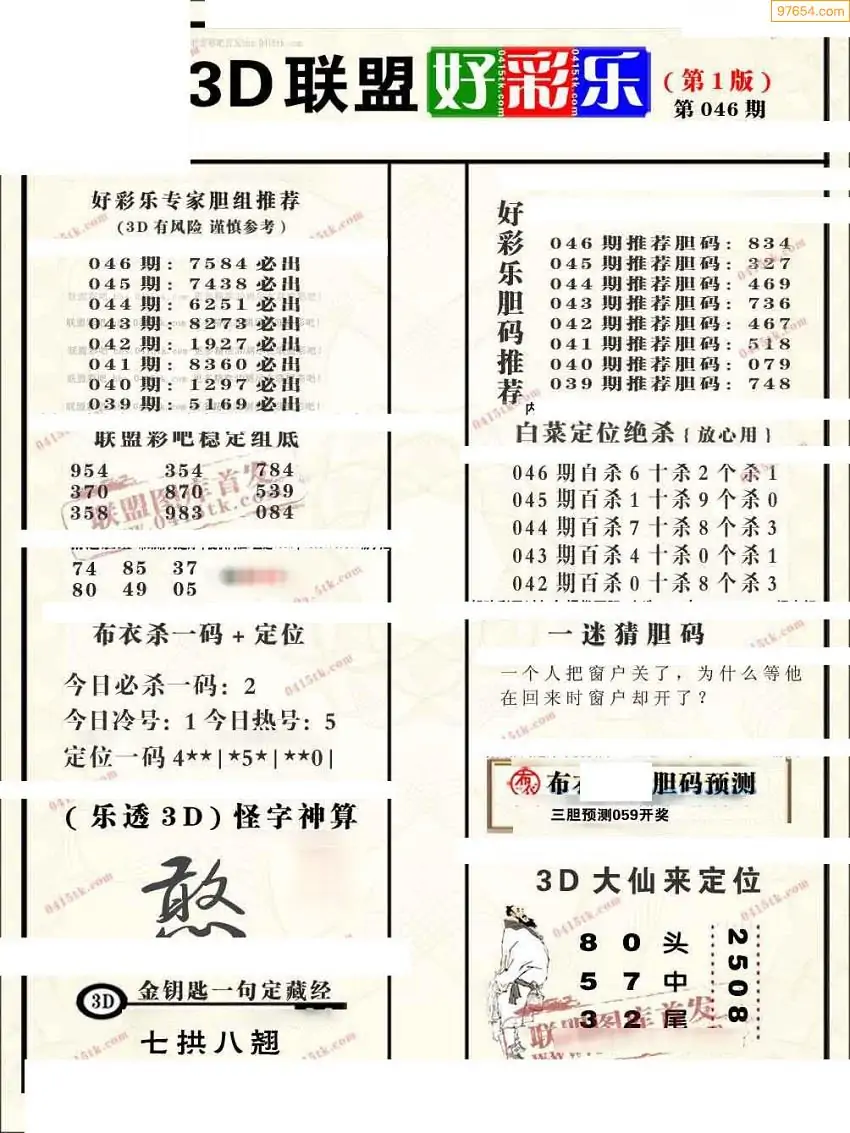 97654.com
3D联盟好彩乐(第1版)
第046期
好彩乐专家胆组推荐
(3D有风险 谨慎参考)
046期:7584必出
045期:7438必出
044期:6251必出
043期:8273必出
042期:1927必出
041期:8360必出
040期:1297必出
039期:5169必出
联盟彩吧稳定组底
954 354 784
370 870 539
358 983 084
74 85 37
80 49 05
布衣杀一码+定位
今日必杀一码:2
今日冷号:1今日热号:5
定位一码4**|*5*|**0|
(乐透3D)怪字神算
憨
3D 金钥匙一句定藏经
七拱八翘
好彩乐胆码推荐
046期推荐胆码:834
045期推荐胆码:327
044期推荐胆码:469
043期推荐胆码:736
042期推荐胆码:467
041期推荐胆码:518
040期推荐胆码:079
039期推荐胆码:748
白菜定位绝杀{放心用}
046期百杀6十杀2个杀1
045期百杀1十杀9个杀0
044期百杀7十杀8个杀3
043期百杀4十杀0个杀1
042期百杀0十杀8个杀3
一迷猜胆码
一个人把窗户关了，为什么等他
在回来时窗户却开了？
布衣 胆码预测
三胆预测059开奖
3D大仙来定位
8 0 头
5 7 中
3 2 尾
2508
联盟图库首发
www.0415tk.com
0415tk.com